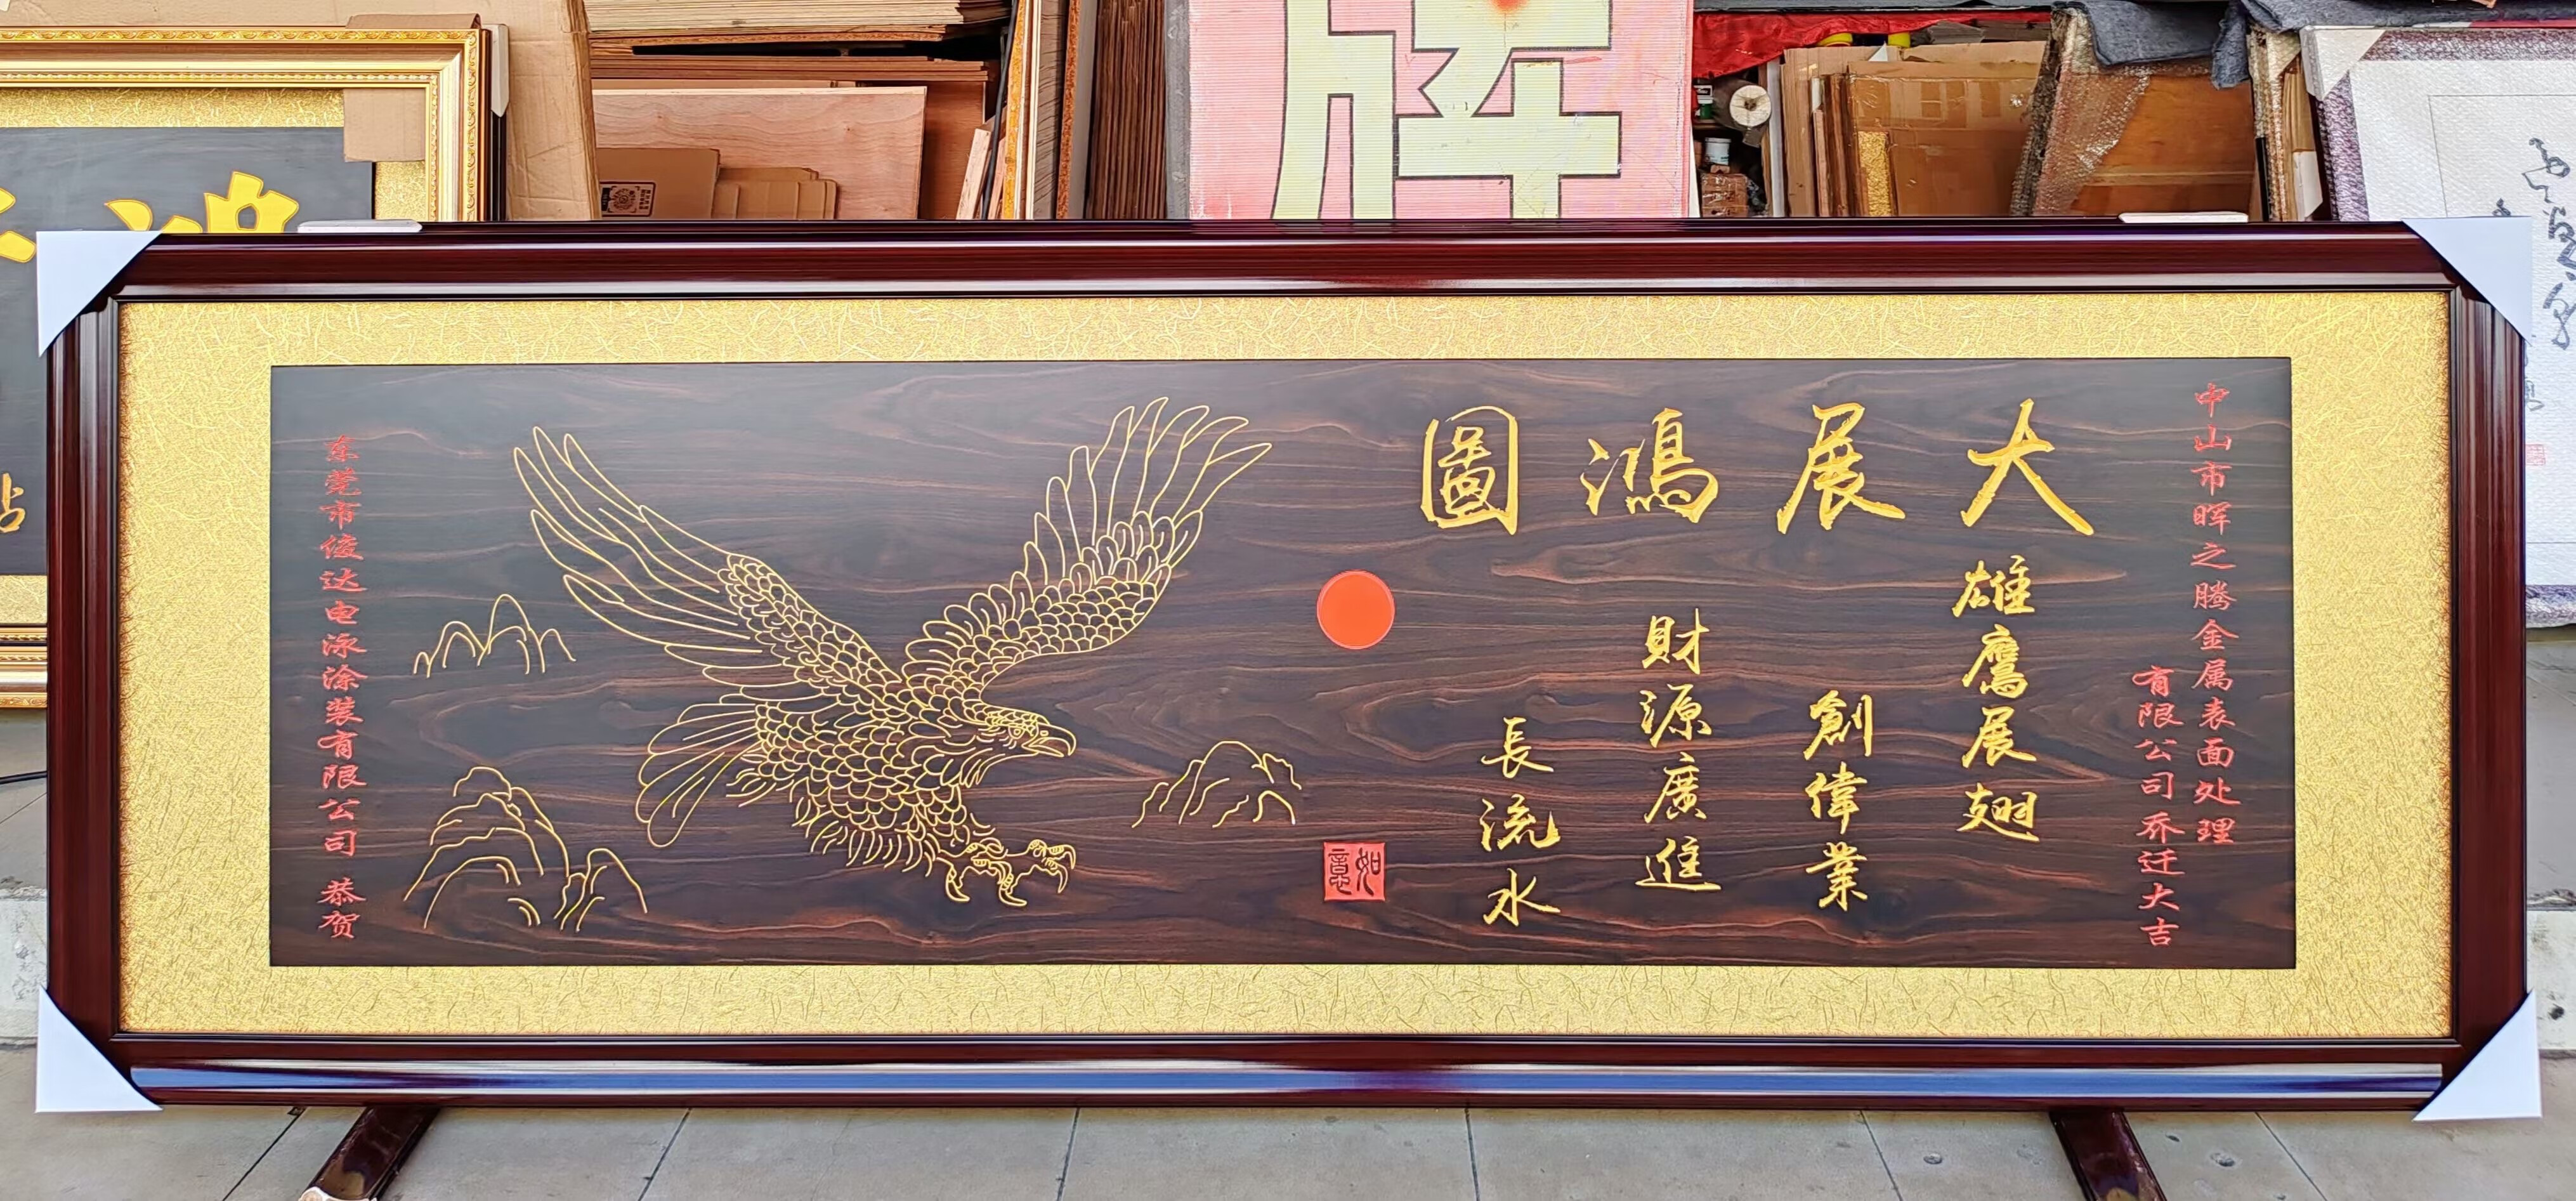 中山市晖之腾金属表面处理
有限公司乔迁大吉
大展鴻圖
雄鷹展翅
創偉業
財源廣進
長流水
如意
东莞市俊达电泳涂装有限公司 恭贺
牌